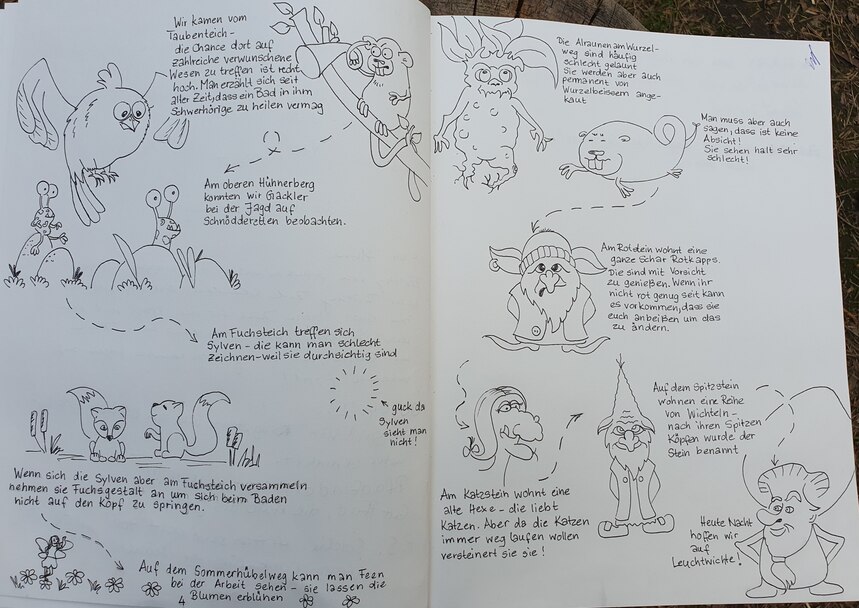 Wir kamen vom
Taubenteich-
die Chance dort auf
zahlreiche verwunschene
Wesen zu treffen ist recht
hoch. Man erzählt sich seit
aller Zeit, dass ein Bad in ihm
Schwerhörige zu heilen vermag
Am oberen Hühnerberg
konnten wir Gackler
bei der Jagd auf
Schnodderztlen beobachten.
Am Fuchsteich treffen sich
Sylven - die kann man schlecht
zeichnen - weil sie durchsichtig sind
guck da
Sylven
sieht man
nicht!
Wenn sich die Sylven aber am Fuchsteich versammeln
nehmen sie Fuchsgestalt an um sich beim Baden
nicht auf den Kopf zu springen.
Auf dem Sommerhübelweg kann man Feen
bei der Arbeit sehen - sie lassen die
Blumen erblühen
4
Die Alraunen am Wurzel-
weg sind häufig
schlecht gelaunt
Sie werden aber auch
permanent von
Wurzelbeissern ange-
kaut
Man muss aber auch
sagen, dass ist keine
Absicht!
Sie sehen halt sehr
schlecht!
Am Rotstein wohnt eine
ganze Schar Rotkapps.
Die sind mit Vorsicht
zu genießen. Wenn ihr
nicht rot genug seit kann
es vorkommen, dass sie
euch anbeißen um das
zu ändern.
Am Katzstein wohnt eine
alte Hexe - die liebt
Katzen. Aber da die Katzen
immer weg laufen wollen
versteinert sie sie!
Auf dem Spitzstein
wohnen eine Reihe
von Wichteln -
nach ihren Spitzen
Köpfen wurde der
Stein benannt
Heute Nacht
hoffen wir
auf
Leuchtwichte!